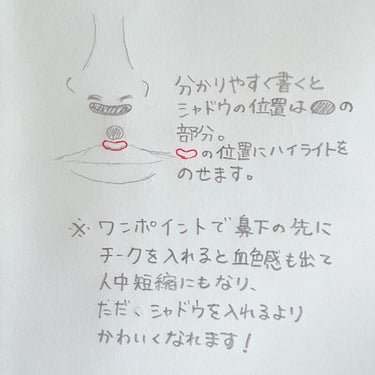 分かりやすく書くと
シャドウの位置は の
部分。
の位置にハイライトを
のせます。
※ ワンポイントで鼻下の先に
チークを入れると血色感も出て
人中短縮にもなり、
ただ、シャドウを入れるより
かわいくなれます!